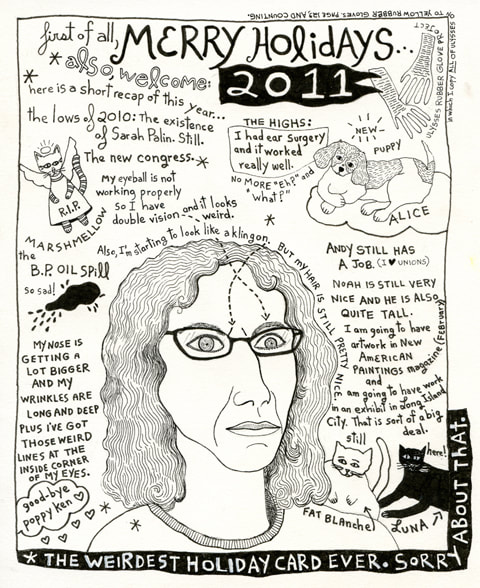 first of all, MERRY HOLIDAYS...
* also, welcome:
2011
here is a short recap of this year...
the lows of 2010: the existence
of Sarah Palin. Still.
The new congress.*
My eyeball is not
working properly
so I have
double vision --- and it looks
weird.
R.I.P.
MARSHMELLOW
the
B.P. OIL Spill
so sad!
Also, I'm starting to look like a klingon. But my HAIR IS STILL PRETTY NICE.
MY NOSE IS
GETTING A
LOT BIGGER
AND MY
WRINKLES ARE
LONG AND DEEP
PLUS I'VE GOT
THOSE WEIRD
LINES AT THE
INSIDE CORNER
OF MY EYES.
good-bye
poppy Ken
THE HIGHS:
I had ear surgery
and it worked
really well.
NO MORE "Eh?" and
"what?"
NEW
PUPPY
ALICE
ULYSSES RUBBER GLOVE PROJECT
in which I copy ALL OF ULYSSES
TO YELLOW RUBBER GLOVES. PAGE 123, AND COUNTING.
ANDY STILL HAS
A JOB. (I ♥ UNIONS)
NOAH IS STILL VERY
NICE AND HE IS ALSO
QUITE TALL.
I am going to have
artwork in New
AMERICAN
PAINTINGS magazine (FEBRUARY)
and
am going to have work
in an exhibit in Long Island
City. That is sort of a big
deal.
still
here!
FAT BLANCHE
LUNA
* THE WEIRDEST HOLIDAY CARD EVER. SORRY ABOUT THAT.